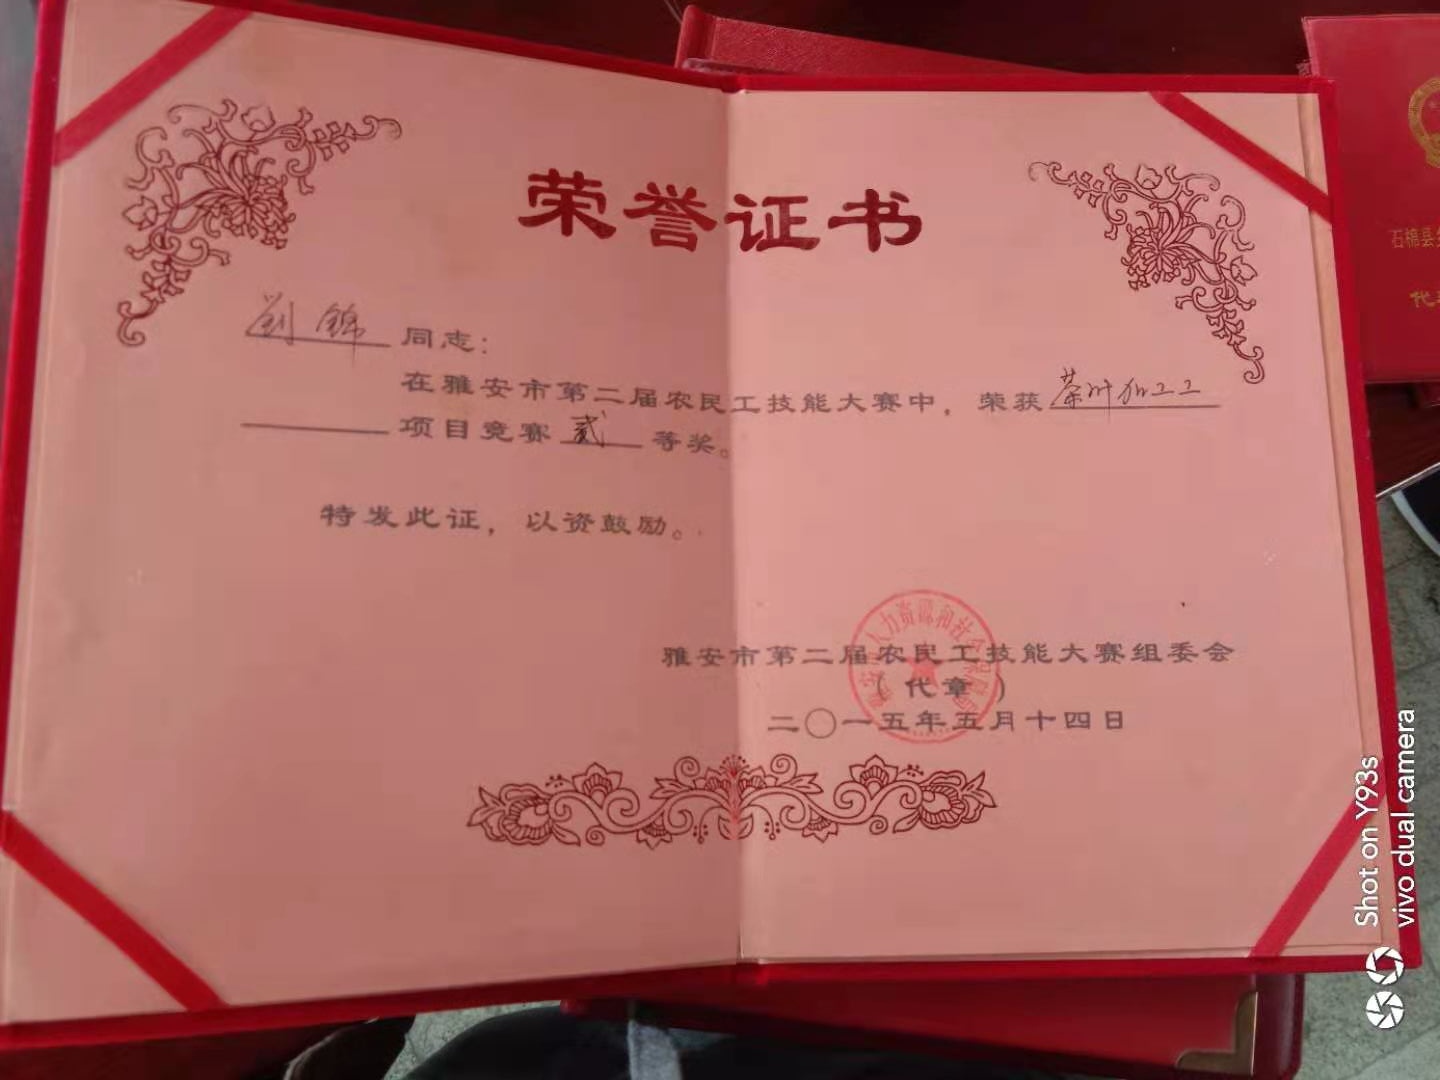 荣誉证书
刘锦 同志：
在雅安市第二届农民工技能大赛中，荣获 茶叶加工工
项目竞赛 贰 等奖。
特发此证，以资鼓励。
人力资源和社会
雅安市第二届农民工技能大赛组委会
（代章）
二〇一五年五月十四日
石棉县
代
Shot on Y93s
vivo dual camera